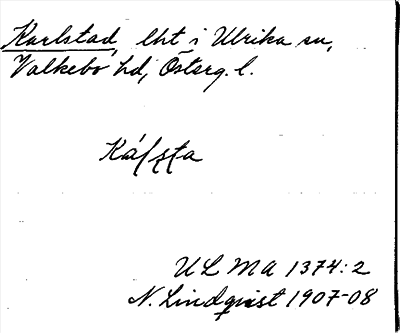 Karlstad, lht i Ulrika sn,
Valkebo hd, Österg. l.
ULMA 1374:2
N. Lindqvist 1907-08